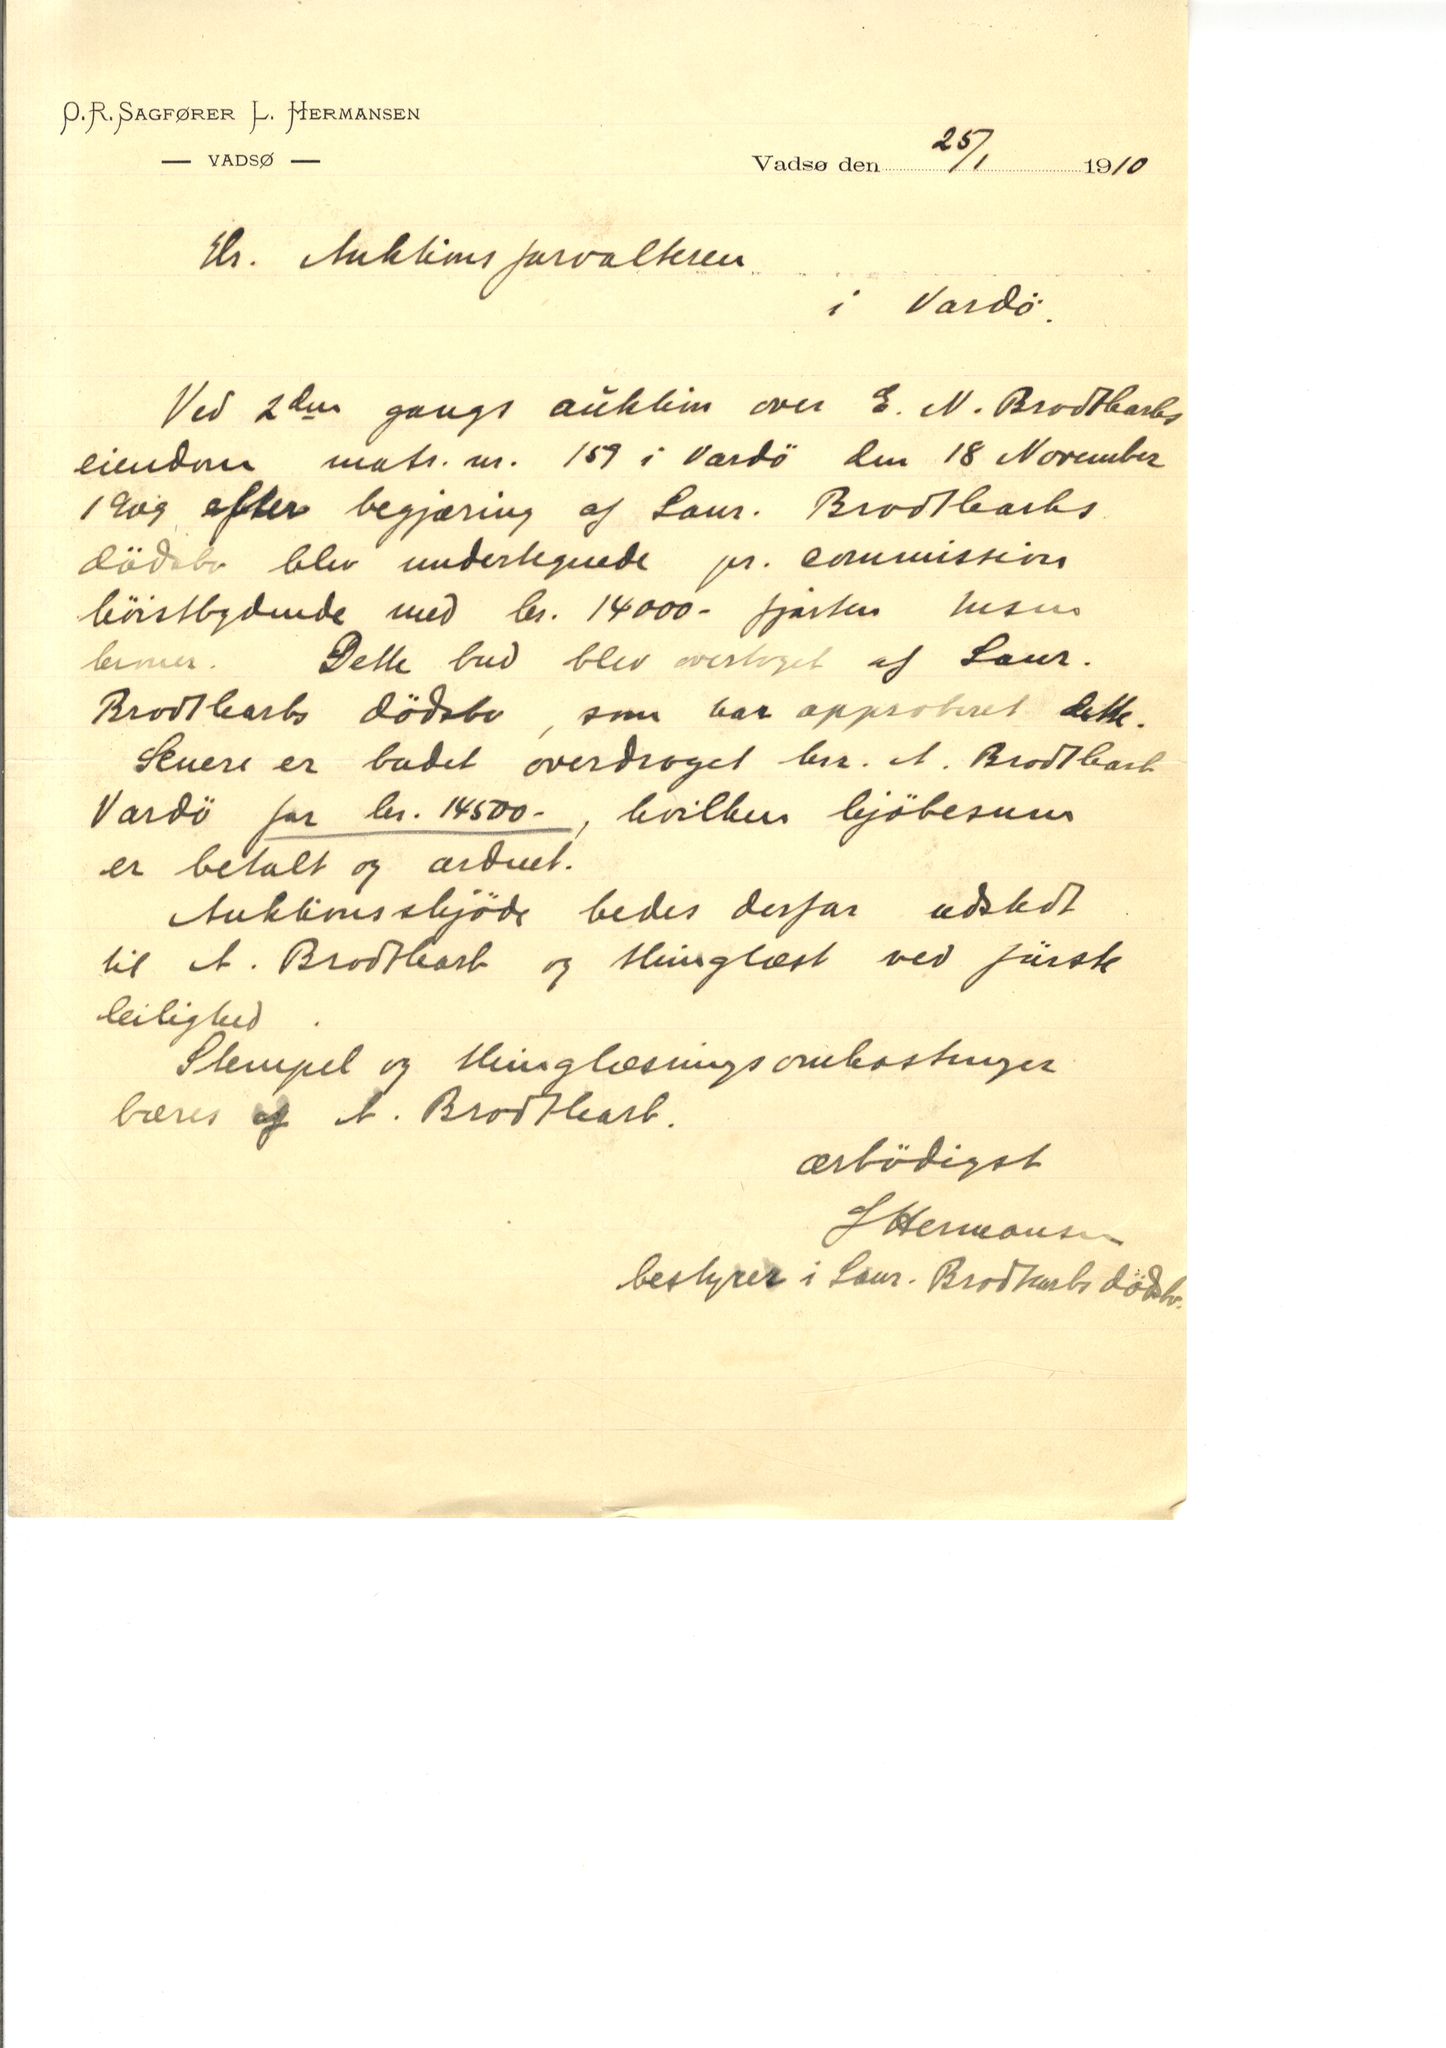 O.R. SAGFØRER L. HERMANSEN
— VADSØ —
Vadsø den 25/1 1910
Hr. Auktionsforvalteren
i Vardö.
Ved 2den gangs auktion over E. N. Brodtkorbs
eiendom matr. nr. 159 i Vardö den 18 November
1909 efter begjæring af Laur. Brodtkorbs
dödsbo blev undertegnede pr. commission
höistbydende med kr. 14000- fjorten tusen
kroner. Dette bud blev overtaget af Laur.
Brodtkorbs dödsbo, som har approberet dette.
Senere er budet overdraget hr. A. Brodtkorb
Vardö for kr. 14500-, hvilken kjöbesum
er betalt og ordnet.
Auktionsskjöde bedes derfor udstedt
til A. Brodtkorb og thinglæst ved förste
leilighed.
Stempel og thinglæsningsomkostninger
bæres af A. Brodtkorb.
ærbödigst
L Hermansen
bestyrer i Laur. Brodtkorbs dödsbo.